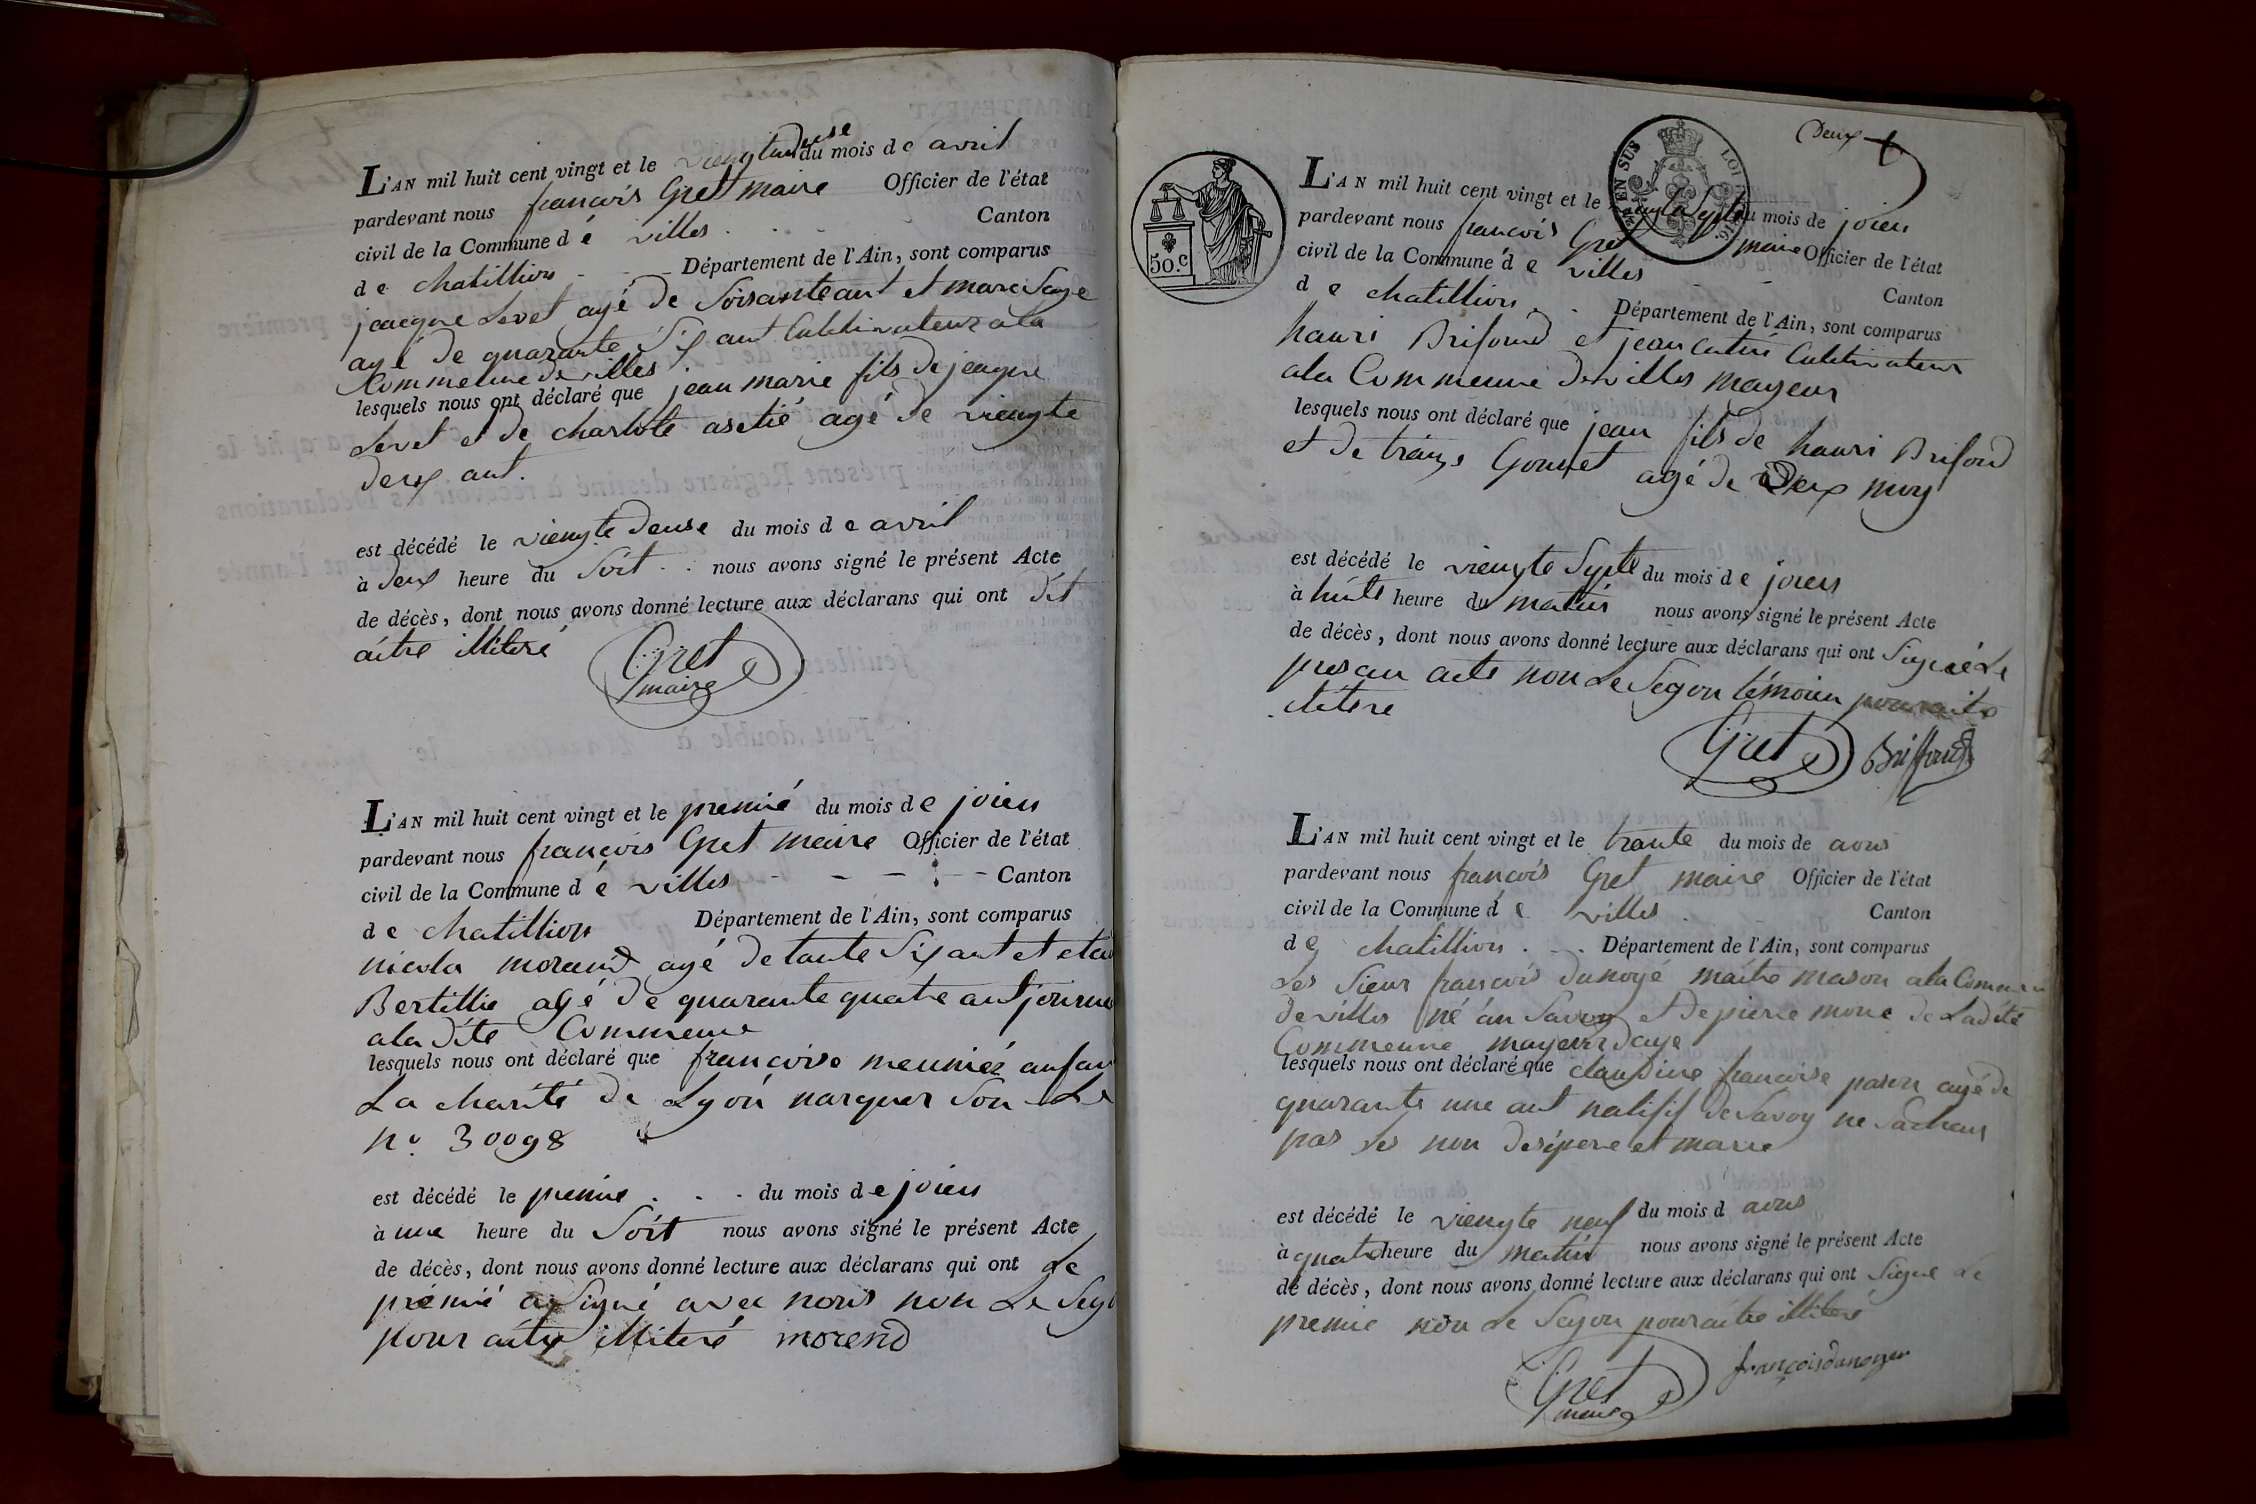 L'AN mil huit cent vingt et le viengtdeuse du mois de avril
pardevant nous françois Gret maire Officier de l'état
civil de la Commune dé villes Canton
de chatillion Département de l'Ain, sont comparus
jacque Levet agé de Soisanteant et marc Saye
agé de quarante Six ant Cultivateur a la
Commeune de villes
lesquels nous ont déclaré que jean marie fils de jeaque
Levet et de charlote asetié agé de viengte
deux ant.
est décédé le viengte deuse du mois de avril
à deux heure du Soit nous avons signé le présent Acte
de décès, dont nous avons donné lecture aux déclarans qui ont dit
aitre illiteré
Gret
maire
L'AN mil huit cent vingt et le premié du mois de joien
pardevant nous françois Gret meire Officier de l'état
civil de la Commune dé villes Canton
de chatillion Département de l'Ain, sont comparus
nicola moraind agé de tante Six ant et
Bertillie agé de quarante quatre ant
a la dite Commeune
lesquels nous ont déclaré que françoise meuniez anfan
La charité de Lyon marquer Sou Le
n° 30098
est décédé le premie du mois de joien
à une heure du Soit nous avons signé le présent Acte
de décès, dont nous avons donné lecture aux déclarans qui ont Le
prémié a Signé avec nous non Le Sego
pour aitre illiteré morend
Deux
EN SUS LOI 1816
50.c
L'AN mil huit cent vingt et le viengte Sypte du mois de joien
pardevant nous françois Gret maire Officier de l'état
civil de la Commune de villes Canton
de chatillion Département de l'Ain, sont comparus
hanri Brifoud et jean Cultivateur
a la Commeune de villes mageur
lesquels nous ont déclaré que jean fils de hanri Brifoud
et de Gonnet agé de Deux moy
est décédé le viengte Sypte du mois de joien
à huite heure du matin nous avons signé le présent Acte
de décès, dont nous avons donné lecture aux déclarans qui ont Signé Le
presan acte non Le Segon témoien pour aitre
ilitere
Gret Briffoud
L'AN mil huit cent vingt et le trante du mois de aous
pardevant nous françois Gret maire Officier de l'état
civil de la Commune dé villes Canton
de chatillion Département de l'Ain, sont comparus
Les Sieur françois dunoyé maitre mason a la Commeune
de villes né an Savoy et de pierre mone de Ladité
Commeune mageur d'age
lesquels nous ont déclaré que claudine françoise pason agé de
quarante une ant natifif de Savoy ne Sachan
pas Les non de Sipere et marre
est décédé le viengte neuf du mois d aous
à quatre heure du matin nous avons signé le présent Acte
de décès, dont nous avons donné lecture aux déclarans qui ont Signe Le
premie non Le Segon pour aitre illiteré
Gret
maire
françois dunoyer